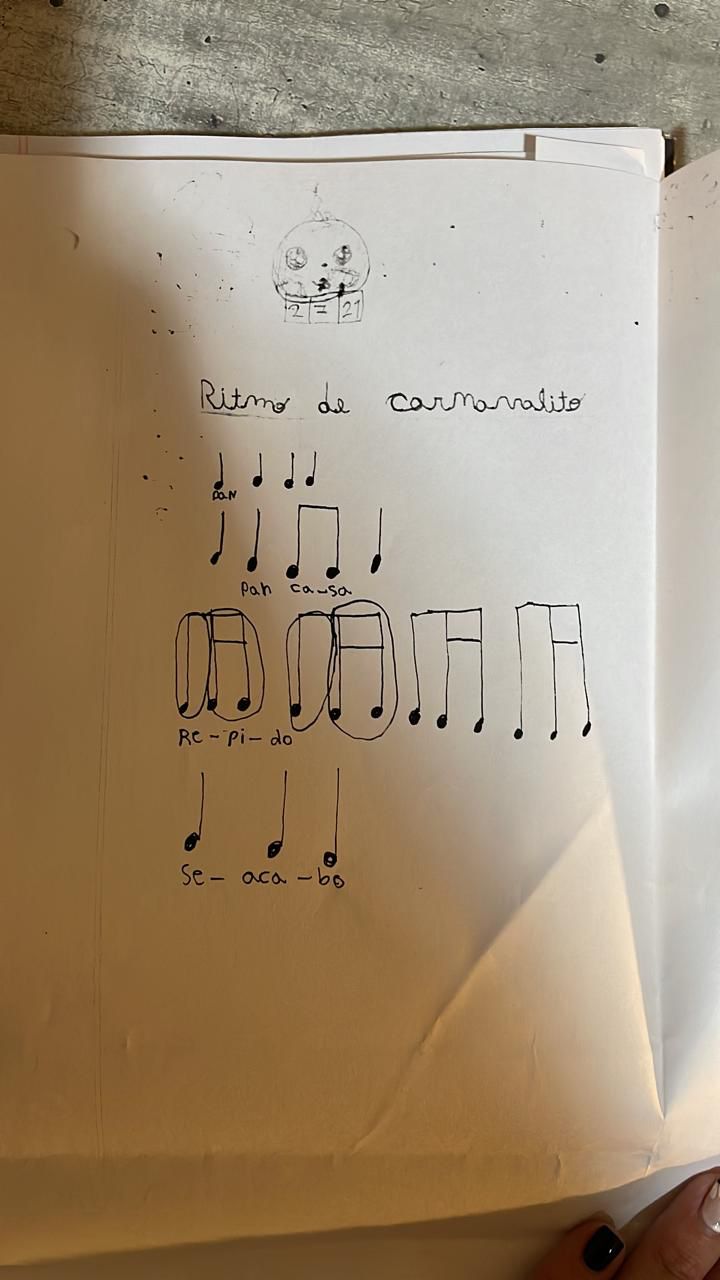 2 7 21
Ritmo de carnavalito
pan
pan ca-sa
Re-pi-do
Se- aca-bo